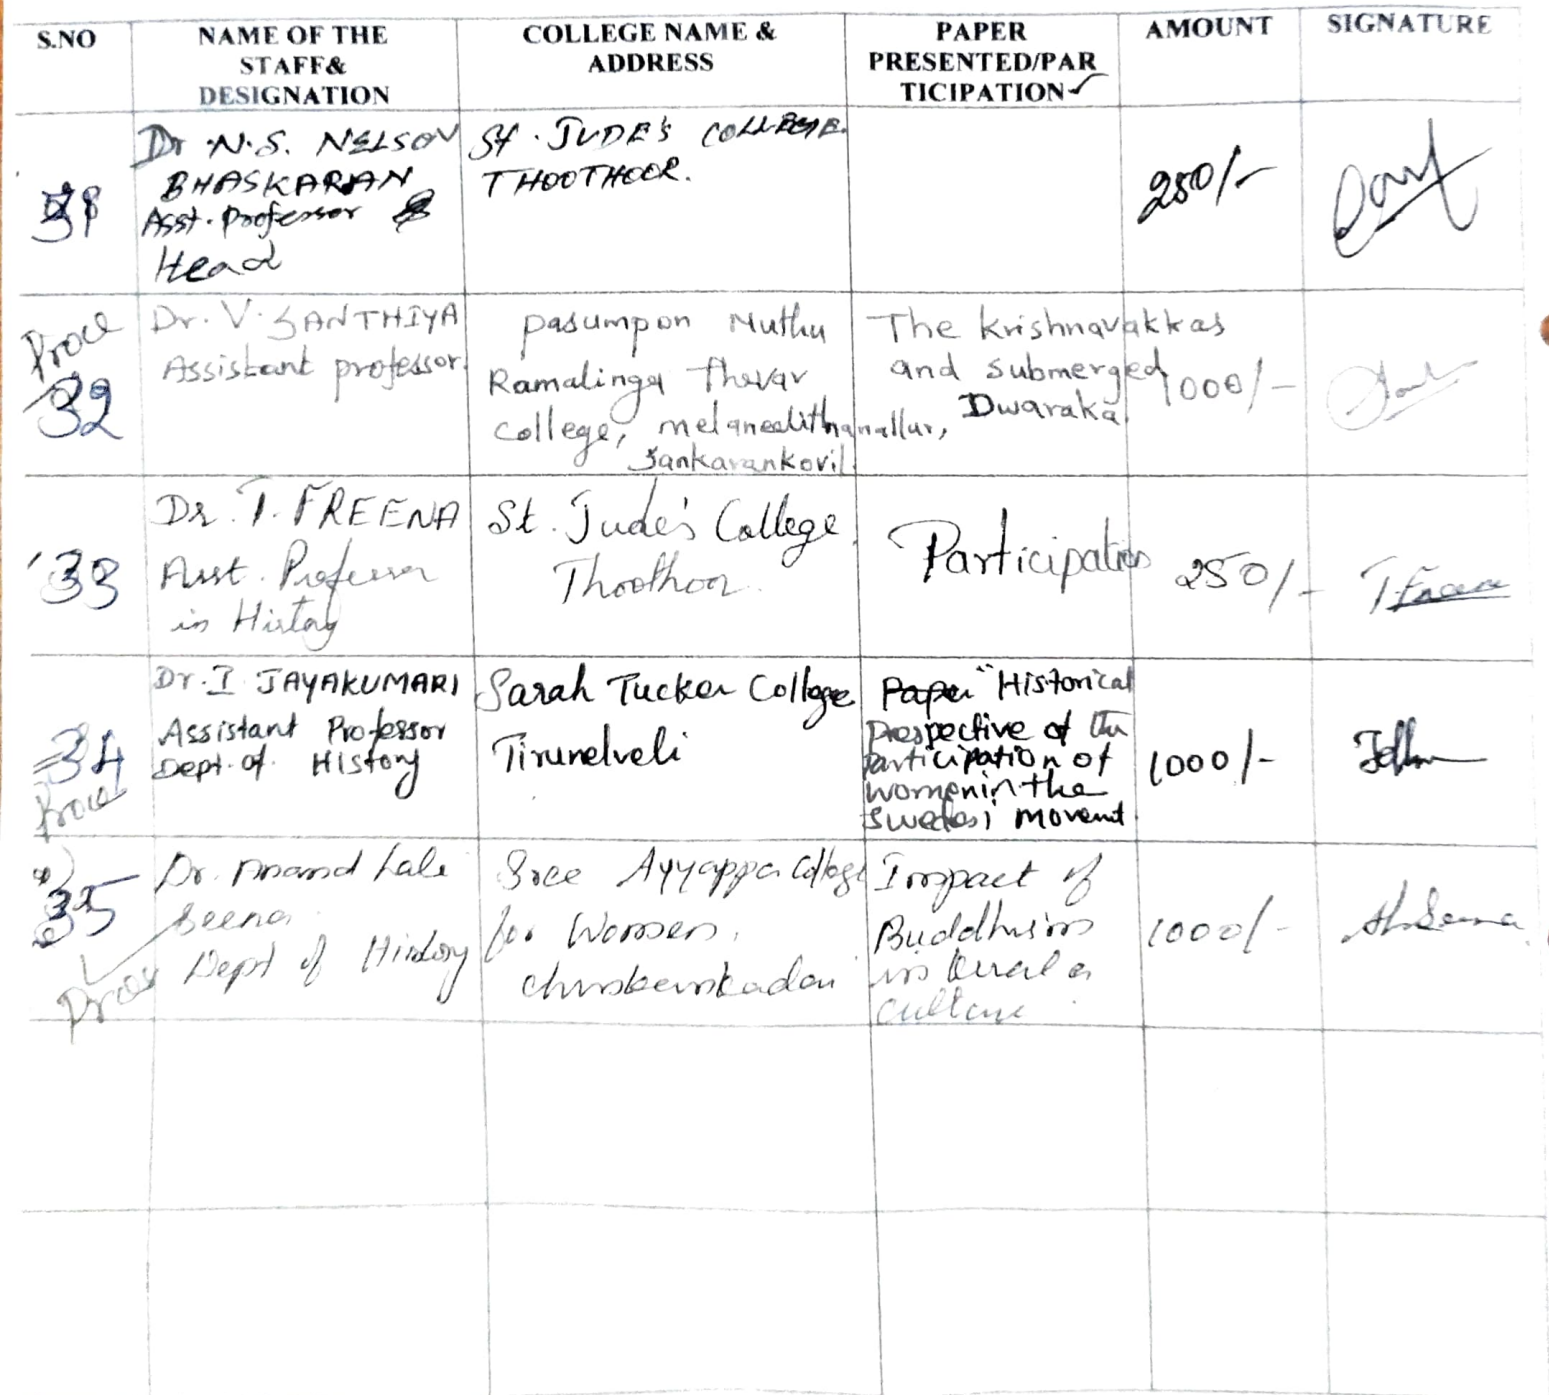 S.NO
NAME OF THE
STAFF&
DESIGNATION
COLLEGE NAME &
ADDRESS
PAPER
PRESENTED/PAR
TICIPATION✓
AMOUNT
SIGNATURE
31
Dr. N.S. NELSON
BHASKARAN
Asst. Professor &
Head
St. JUDE's COLLEGE.
THOOTHOOR.
250/-
Proce
32
Dr. V. SANTHIYA
Assistant professor.
pasumpon Muthu
Ramalinga Thevar
college, melaneelithanallur,
Sankarankovil.
The Krishnavakkas
and submerged
Dwaraka.
1000/-
33
Dr. T. FREENA
Asst. Professor
in History
St. Jude's College,
Thoothoor.
Participation
250/-
34
Proce
Dr. I JAYAKUMARI
Assistant Professor
Dept. of History
Sarah Tucker College
Tirunelveli
"Historical
Prespective of the
participation of
women in the
Swedesi Movent
1000/-
35
Dr. Anand Lali
Seena
Dept of History
Sree Ayyappa College
for Women,
Chunkankadai
Impact of
Buddhism
in Kerala
Culture.
1000/-